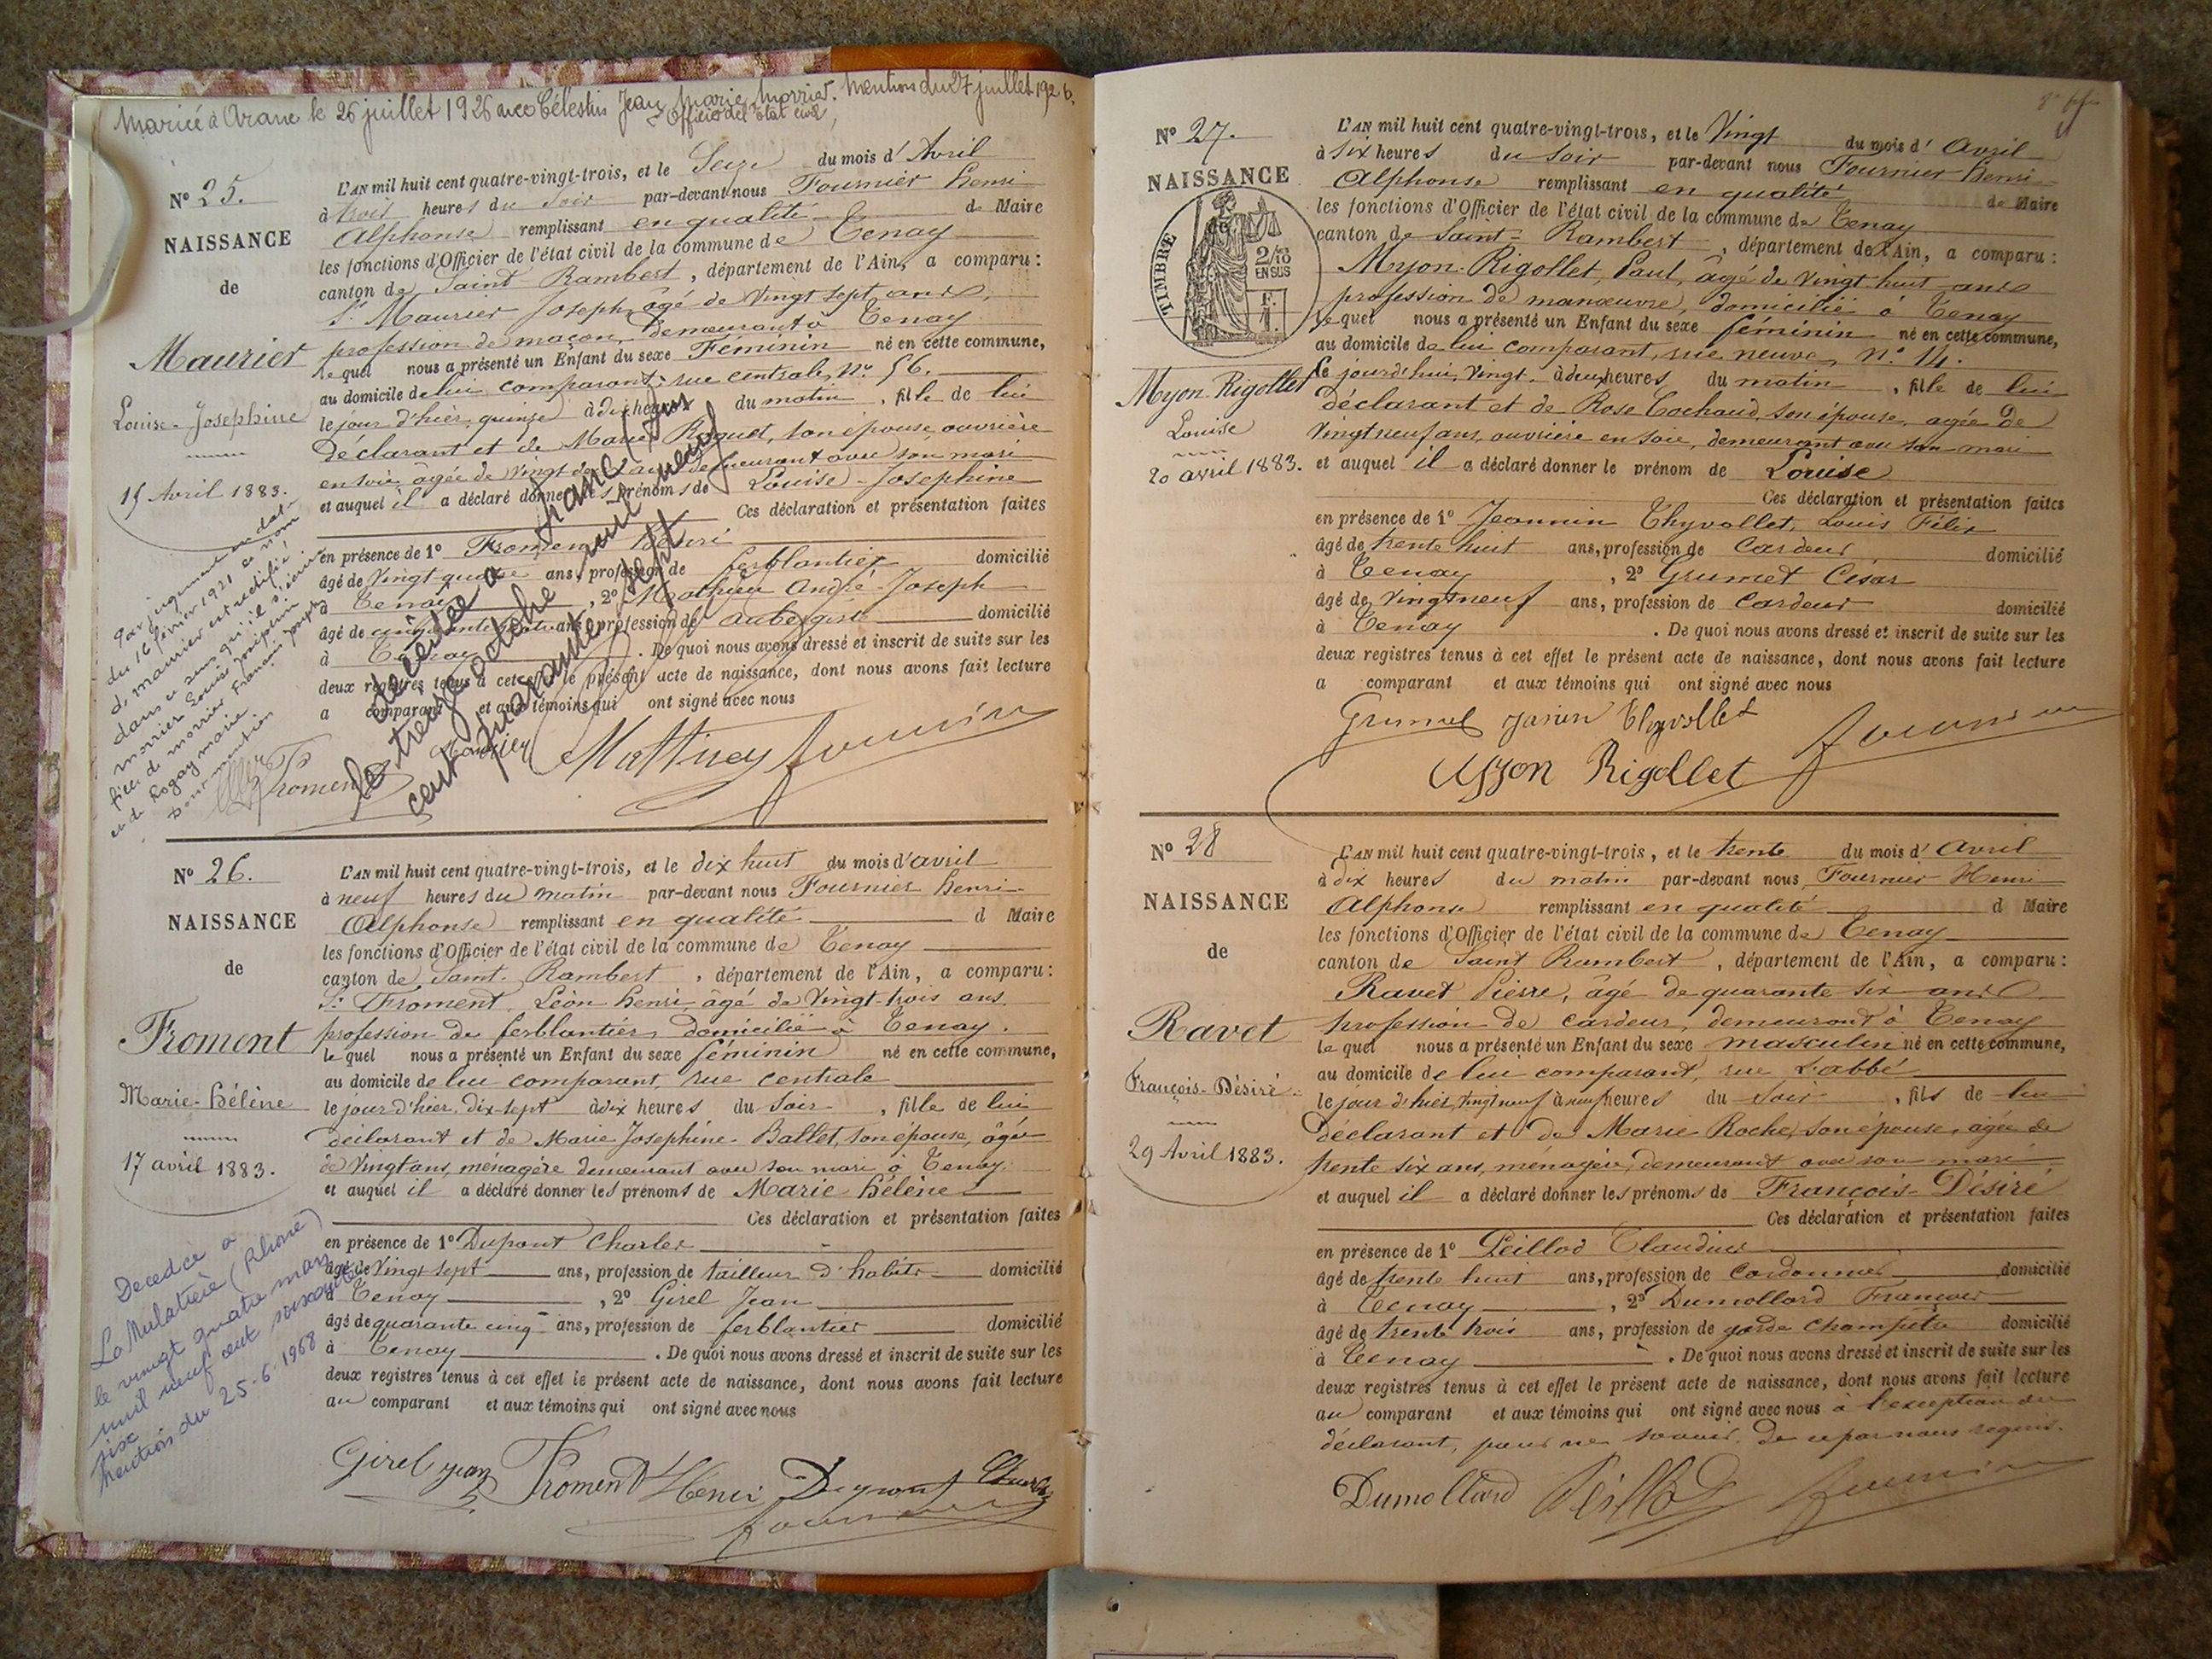 Mariée à Arane le 26 juillet 1926 avec Célestin Jean Marie Morrier. Mention du 27 juillet 1926.
L'Officier de l'état civil,
N° 25.
NAISSANCE
de
Maurier
Louise-Josephine
15 Avril 1883.
Par jugement en date
du 16 février 1921 ce nom
de maurier est rectifié
dans ce sens qu'il s'écrira
morrier Louise Joséphine
fille de morrier François Joseph
et de Rogay marie
Dont mention
L'AN mil huit cent quatre-vingt-trois, et le Seize du mois d'Avril
à trois heures du soir par-devant nous Fournier Henri
Alphonse remplissant en qualité de Maire
les fonctions d'Officier de l'état civil de la commune de Tenay
canton de Saint Rambert, département de l'Ain, a comparu:
Sr Maurier Joseph, âgé de vingt sept ans,
profession de maçon, demeurant à Tenay
le quel nous a présenté un Enfant du sexe Féminin né en cette commune,
au domicile de lui comparant, rue centrale, N° 56.
le jour d'hier, quinze à dix heures du matin, fille de lui
déclarant et de Marie Roguet, son épouse, ouvrière
en soie, âgée de vingt deux ans demeurant avec son mari
et auquel il a déclaré donner les prénoms de Louise-Josephine
Ces déclaration et présentation faites
en présence de 1° Froment Henri
âgé de vingt quatre ans, profession de ferblantier domicilié
à Tenay, 2° Mathieu André-Joseph
âgé de cinquante ans, profession de aubergiste domicilié
à Tenay. De quoi nous avons dressé et inscrit de suite sur les
deux registres tenus à cet effet le présent acte de naissance, dont nous avons fait lecture
a comparant et aux témoins qui ont signé avec nous
décédée à Arane (Ain)
le treize octobre mil neuf
cent quarante sept
Froment Maurier Matthieu Fournier
N° 26.
NAISSANCE
de
Froment
Marie-Hélène
17 avril 1883.
Decedée a
La Mulatière (Rhone)
le vingt quatre mars
mil neuf cent soixante
six
Mention du 25-6-1968
L'AN mil huit cent quatre-vingt-trois, et le dix huit du mois d'avril
à neuf heures du matin par-devant nous Fournier Henri-
Alphonse remplissant en qualité d Maire
les fonctions d'Officier de l'état civil de la commune de Tenay
canton de Saint-Rambert, département de l'Ain, a comparu:
Sr Froment Léon Henri âgé de vingt-trois ans
profession de ferblantier domicilié à Tenay.
le quel nous a présenté un Enfant du sexe féminin né en cette commune,
au domicile de lui comparant, rue centrale
le jour d'hier, dix-sept à dix heures du soir, fille de lui
déclarant et de Marie Josephine Ballet, son épouse, âgée
de vingt ans, ménagère demeurant avec son mari à Tenay
et auquel il a déclaré donner les prénoms de Marie-Hélène
Ces déclaration et présentation faites
en présence de 1° Dupont Charles
âgé de vingt sept ans, profession de tailleur d'habits domicilié
à Tenay, 2° Girel Jean
âgé de quarante cinq ans, profession de ferblantier domicilié
à Tenay. De quoi nous avons dressé et inscrit de suite sur les
deux registres tenus à cet effet le présent acte de naissance, dont nous avons fait lecture
au comparant et aux témoins qui ont signé avec nous
Girel jean Froment Henri Dupont Charles
Fournier
N° 27.
NAISSANCE
TIMBRE
2/10
EN SUS
F.
1.
Myon-Rigollet
Louise
20 avril 1883.
L'AN mil huit cent quatre-vingt-trois, et le Vingt du mois d'Avril
à six heures du soir par-devant nous Fournier Henri-
Alphonse remplissant en qualité de Maire
les fonctions d'Officier de l'état civil de la commune de Tenay
canton de Saint-Rambert, département de l'Ain, a comparu:
Myon-Rigollet, Paul, âgé de vingt huit ans
profession de manœuvre, domicilié à Tenay
le quel nous a présenté un Enfant du sexe féminin né en cette commune,
au domicile de lui comparant, rue neuve, N° 14.
le jourd'hui, vingt, à deux heures du matin, fille de lui
déclarant et de Rose Cochaud, son épouse, agée de
vingt neuf ans, ouvrière en soie, demeurant avec son mari
et auquel il a déclaré donner le prénom de Louise
Ces déclaration et présentation faites
en présence de 1° Jeannin Thyvollet, Louis Félix
âgé de trente huit ans, profession de Cardeur domicilié
à Tenay, 2° Grumet César
âgé de vingt neuf ans, profession de Cardeur domicilié
à Tenay. De quoi nous avons dressé et inscrit de suite sur les
deux registres tenus à cet effet le présent acte de naissance, dont nous avons fait lecture
a comparant et aux témoins qui ont signé avec nous
Grumet Janin Thyvollet Fournier
Myon Rigollet
N° 28
NAISSANCE
de
Ravet
François-Désiré
29 Avril 1883.
L'AN mil huit cent quatre-vingt-trois, et le trente du mois d'Avril
à dix heures du matin par-devant nous Fournier Henri
Alphonse remplissant en qualité d Maire
les fonctions d'Officier de l'état civil de la commune de Tenay
canton de Saint Rambert, département de l'Ain, a comparu:
Ravet Pierre, âgé de quarante six ans
profession de cardeur, demeurant à Tenay
le quel nous a présenté un Enfant du sexe masculin né en cette commune,
au domicile de lui comparant, rue L'abbé
le jour d'hier, vingt neuf à neuf heures du soir, fils de lui
déclarant et de Marie Roche, son épouse, agée de
trente six ans, ménagère, demeurant avec son mari
et auquel il a déclaré donner les prénoms de François-Désiré
Ces déclaration et présentation faites
en présence de 1° Peillod Claudius
âgé de trente huit ans, profession de Cordonnier domicilié
à Tenay, 2° Dumollard François
âgé de trente trois ans, profession de garde champêtre domicilié
à Tenay. De quoi nous avons dressé et inscrit de suite sur les
deux registres tenus à cet effet le présent acte de naissance, dont nous avons fait lecture
au comparant et aux témoins qui ont signé avec nous à l'exception du
déclarant, pour ne savoir. De ce par nous requis.
Dumollard Peillod Fournier